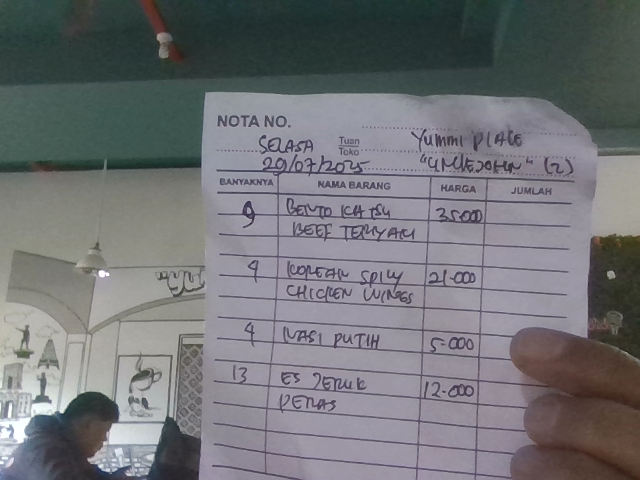 NOTA NO.
SELASA Tuan Toko Yummi PLACE
29/07/2025 "UNCLEJOHN" (2)
BANYAKNYA NAMA BARANG HARGA JUMLAH
9 BENTO KATSU 35.000
BEEF TERIYAKI
4 KOREAN SPICY 21.000
CHICKEN WINGS
4 NASI PUTIH 5.000
13 ES JERUK 12.000
PERAS